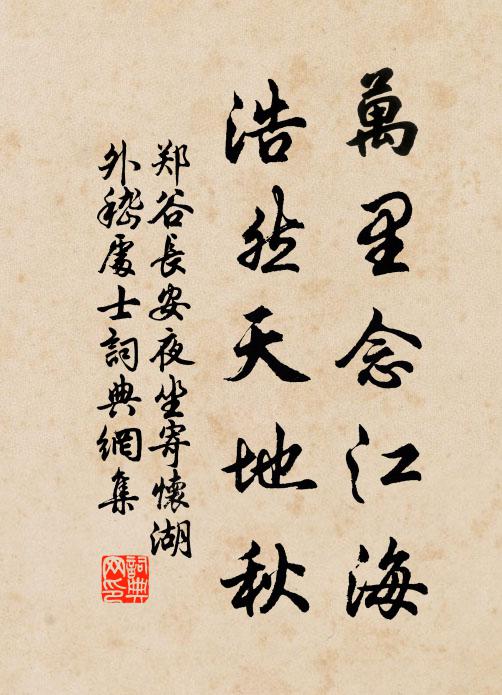 萬里念江海
浩然天地秋
郑谷長安夜坐寄懷湖
外嵇處士詞典網集
詞典
网印